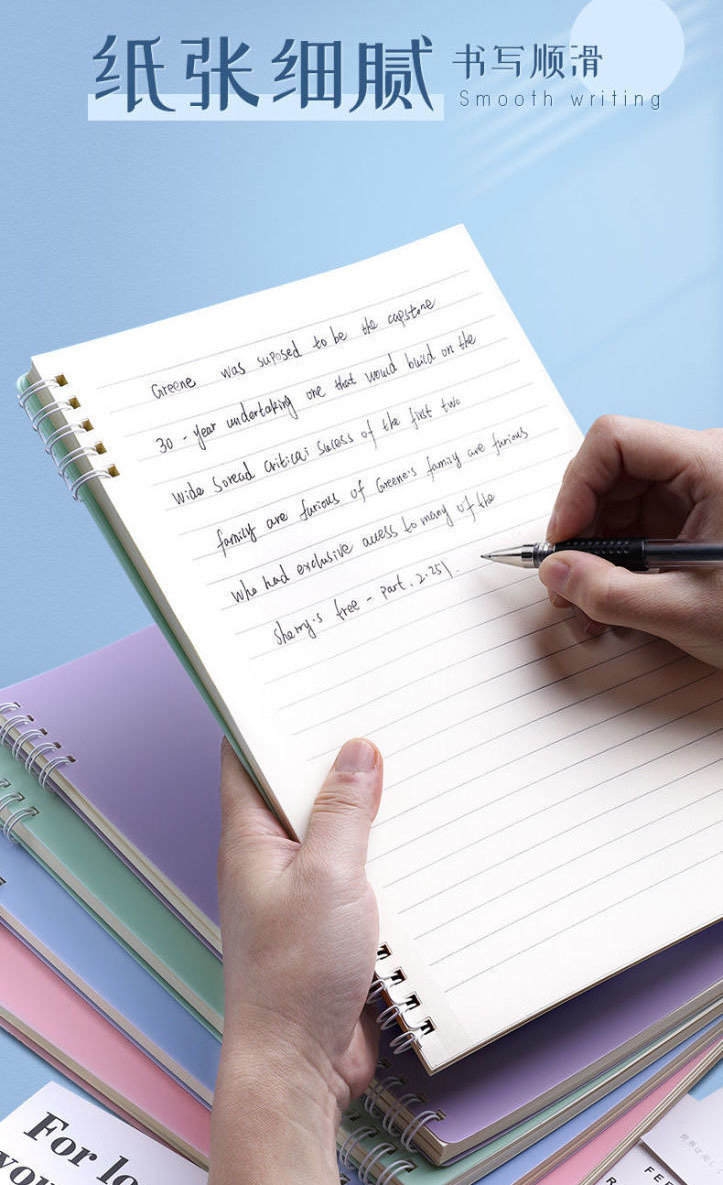 纸张细腻 书写顺滑
Smooth writing
Greene was suposed to be the capstone
30 - year undertaking one that would build on the
wide soread critical sucess of the first two
family are furious of Greene's family are furious
who had exclusive access to many of the
sherry's free - part. 2.251.
For lo
you
FE